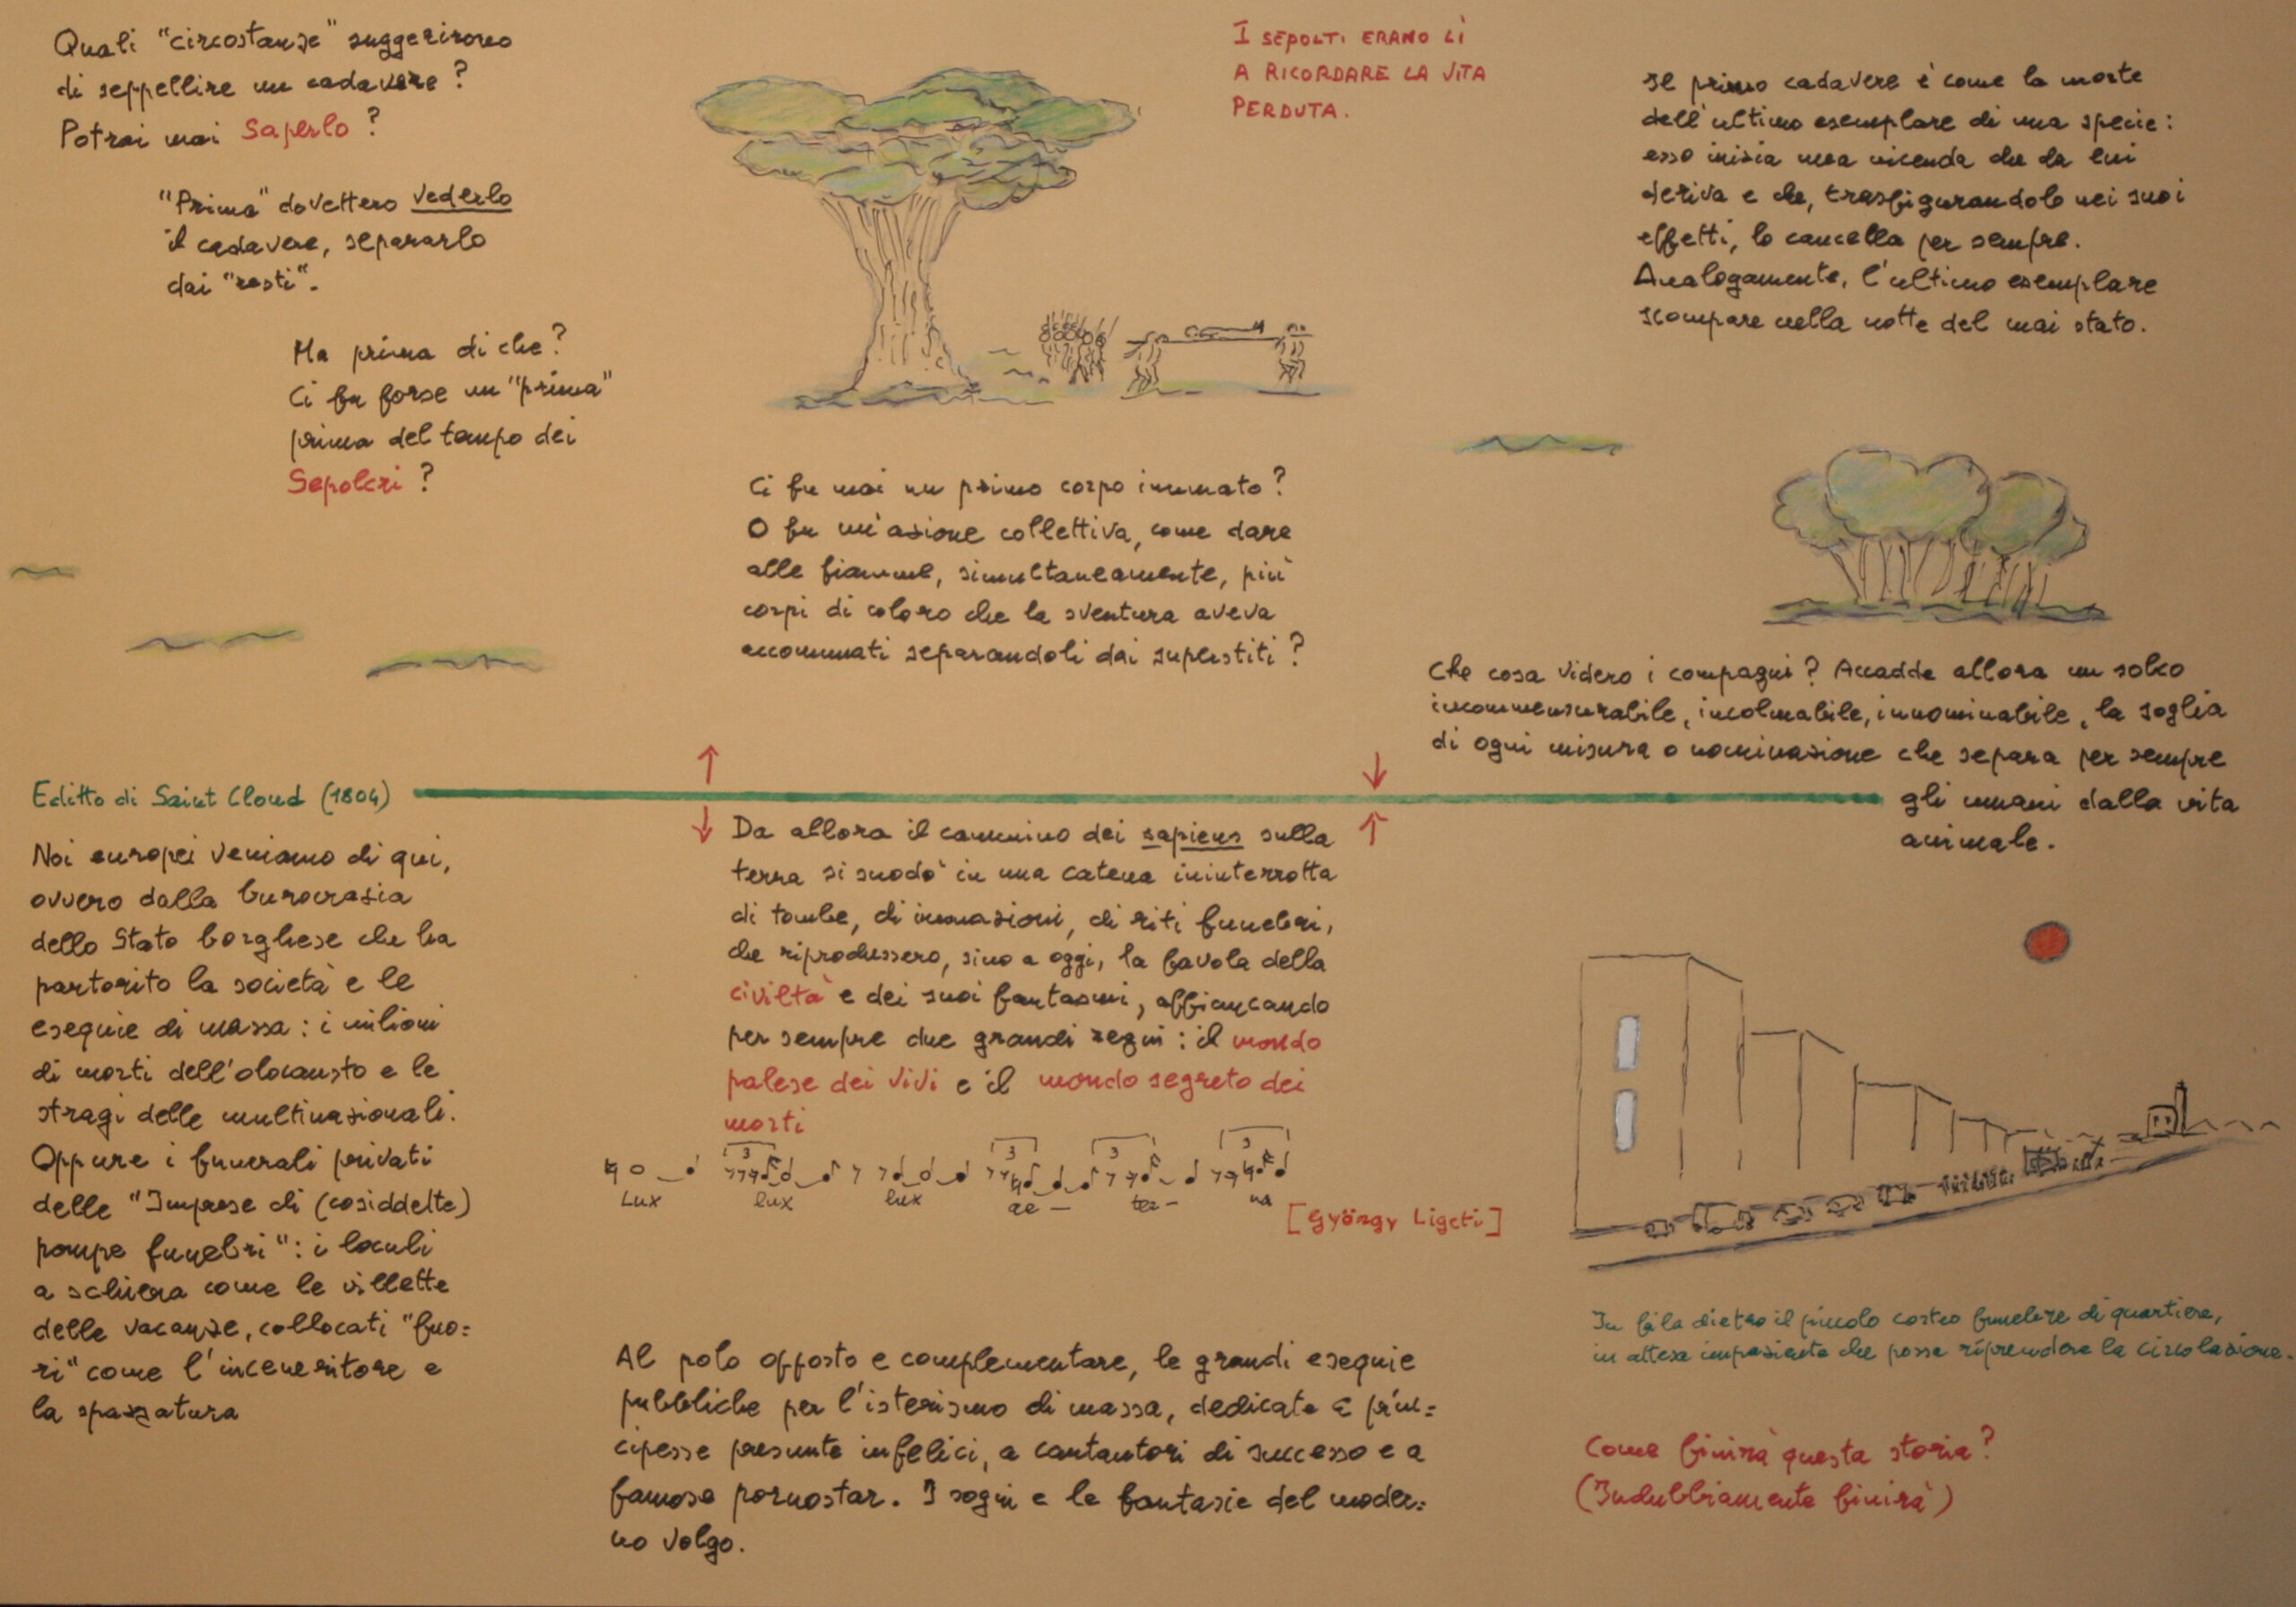 Quali "circostanze" suggerirono
di seppellire un cadavere?
Potrai mai saperlo?
"Prima" dovettero vederlo
il cadavere, separarlo
dai "resti".
Ma prima di che?
Ci fu forse un "prima"
prima del tempo dei
Sepolcri?
I SEPOLTI ERANO LÌ
A RICORDARE LA VITA
PERDUTA.
Il primo cadavere è come la morte
dell'ultimo esemplare di una specie:
esso inizia una vicenda che da lui
deriva e che, trasfigurandolo nei suoi
effetti, lo cancella per sempre.
Analogamente, l'ultimo esemplare
scompare nella notte del mai stato.
Ci fu mai un primo corpo inumato?
O fu un'azione collettiva, come dare
alle fiamme, simultaneamente, più
corpi di coloro che la sventura aveva
accomunati separandoli dai superstiti?
Che cosa videro i compagni? Accadde allora un solco
incommensurabile, incolmabile, innominabile, la soglia
di ogni misura o nominazione che separa per sempre
gli umani dalla vita
animale.
Editto di Saint Cloud (1804)
Noi europei veniamo di qui,
ovvero dalla burocrazia
dello Stato borghese che ha
partorito la società e le
esequie di massa: i milioni
di morti dell'olocausto e le
stragi delle multinazionali.
Oppure i funerali privati
delle "Imprese di (cosiddette)
pompe funebri": i loculi
a schiera come le villette
delle vacanze, collocati "fuo=
ri" come l'inceneritore e
la spazzatura
Da allora il cammino dei sapiens sulla
terra si snodò in una catena ininterrotta
di tombe, di inumazioni, di riti funebri,
che riprodussero, sino a oggi, la favola della
civiltà e dei suoi fantasmi, affiancando
per sempre due grandi regni: il mondo
palese dei vivi e il mondo segreto dei
morti
3 3 3 3
Lux lux lux ae - ter - na
[György Ligeti]
Al polo opposto e complementare, le grandi esequie
pubbliche per l'isterismo di massa, dedicate a prin=
cipesse presunte infelici, a cantautori di successo e a
famose pornostar. I sogni e le fantasie del moder=
no volgo.
In fila dietro il piccolo corteo funebre di quartiere,
in attesa impaziente che possa riprendere la circolazione.
Come finirà questa storia?
(Indubbiamente finirà)